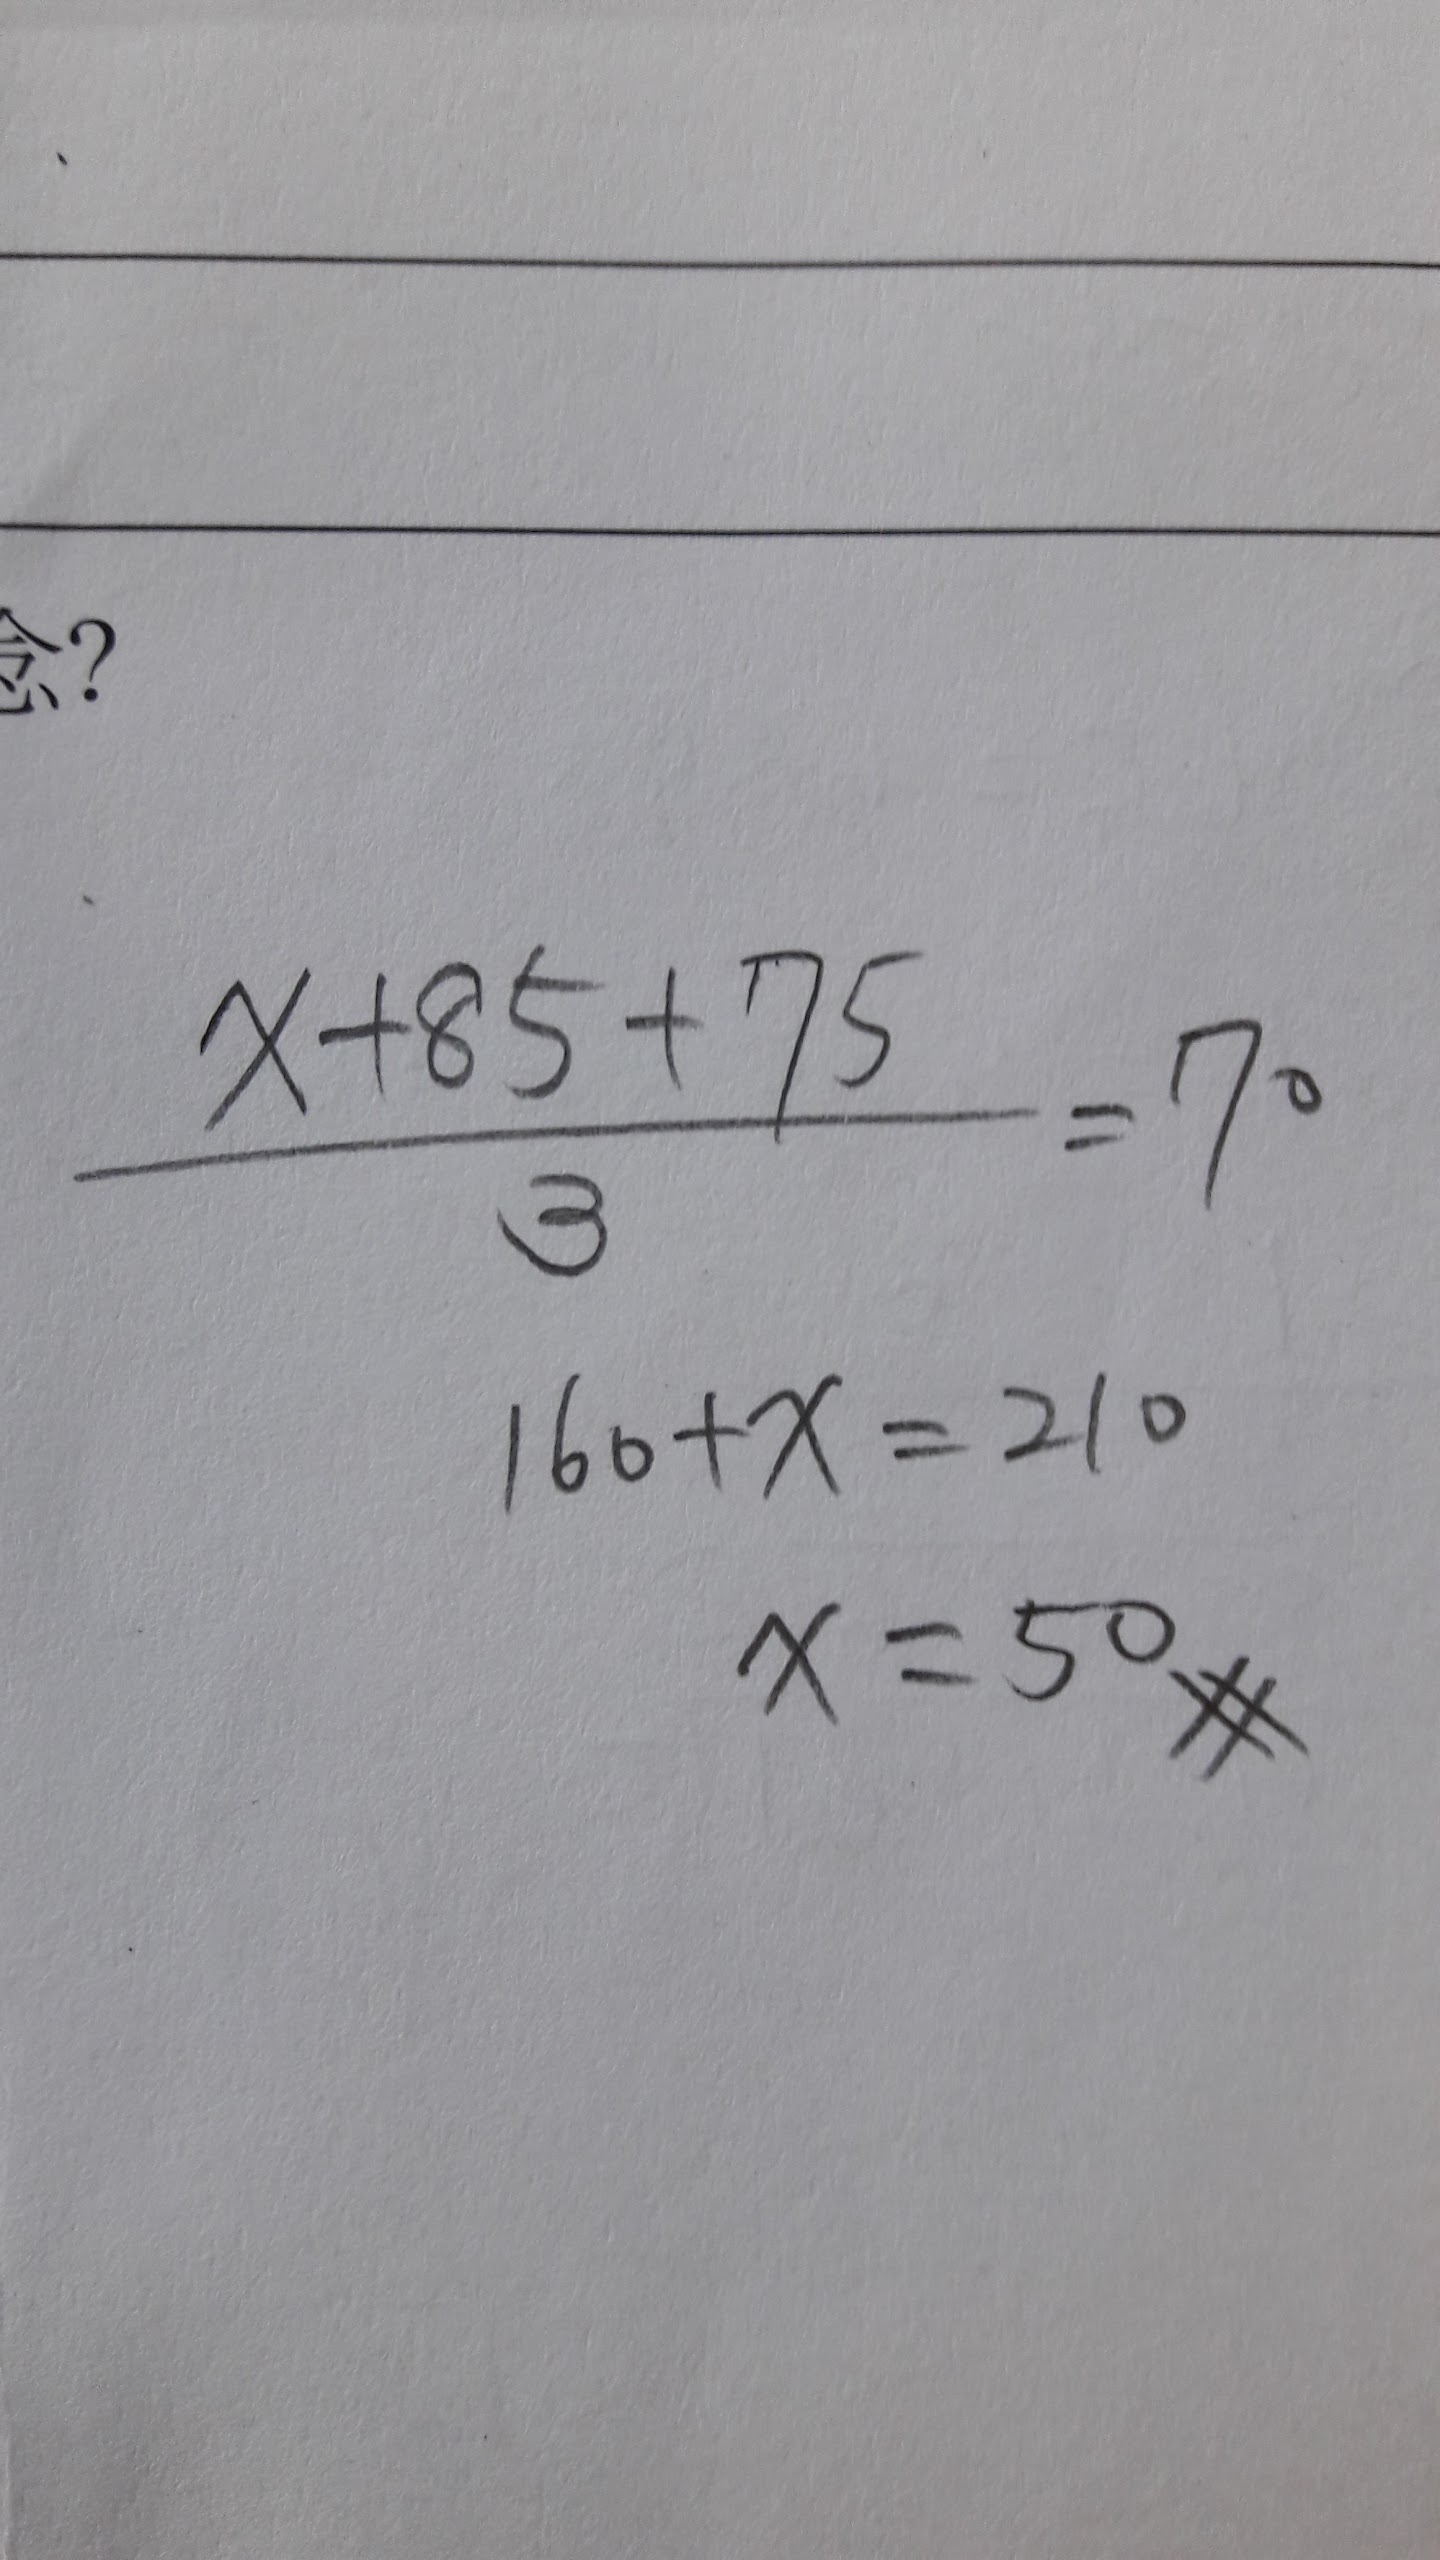 念?
x+85+75
/3 = 70
160+x=210
x=50#